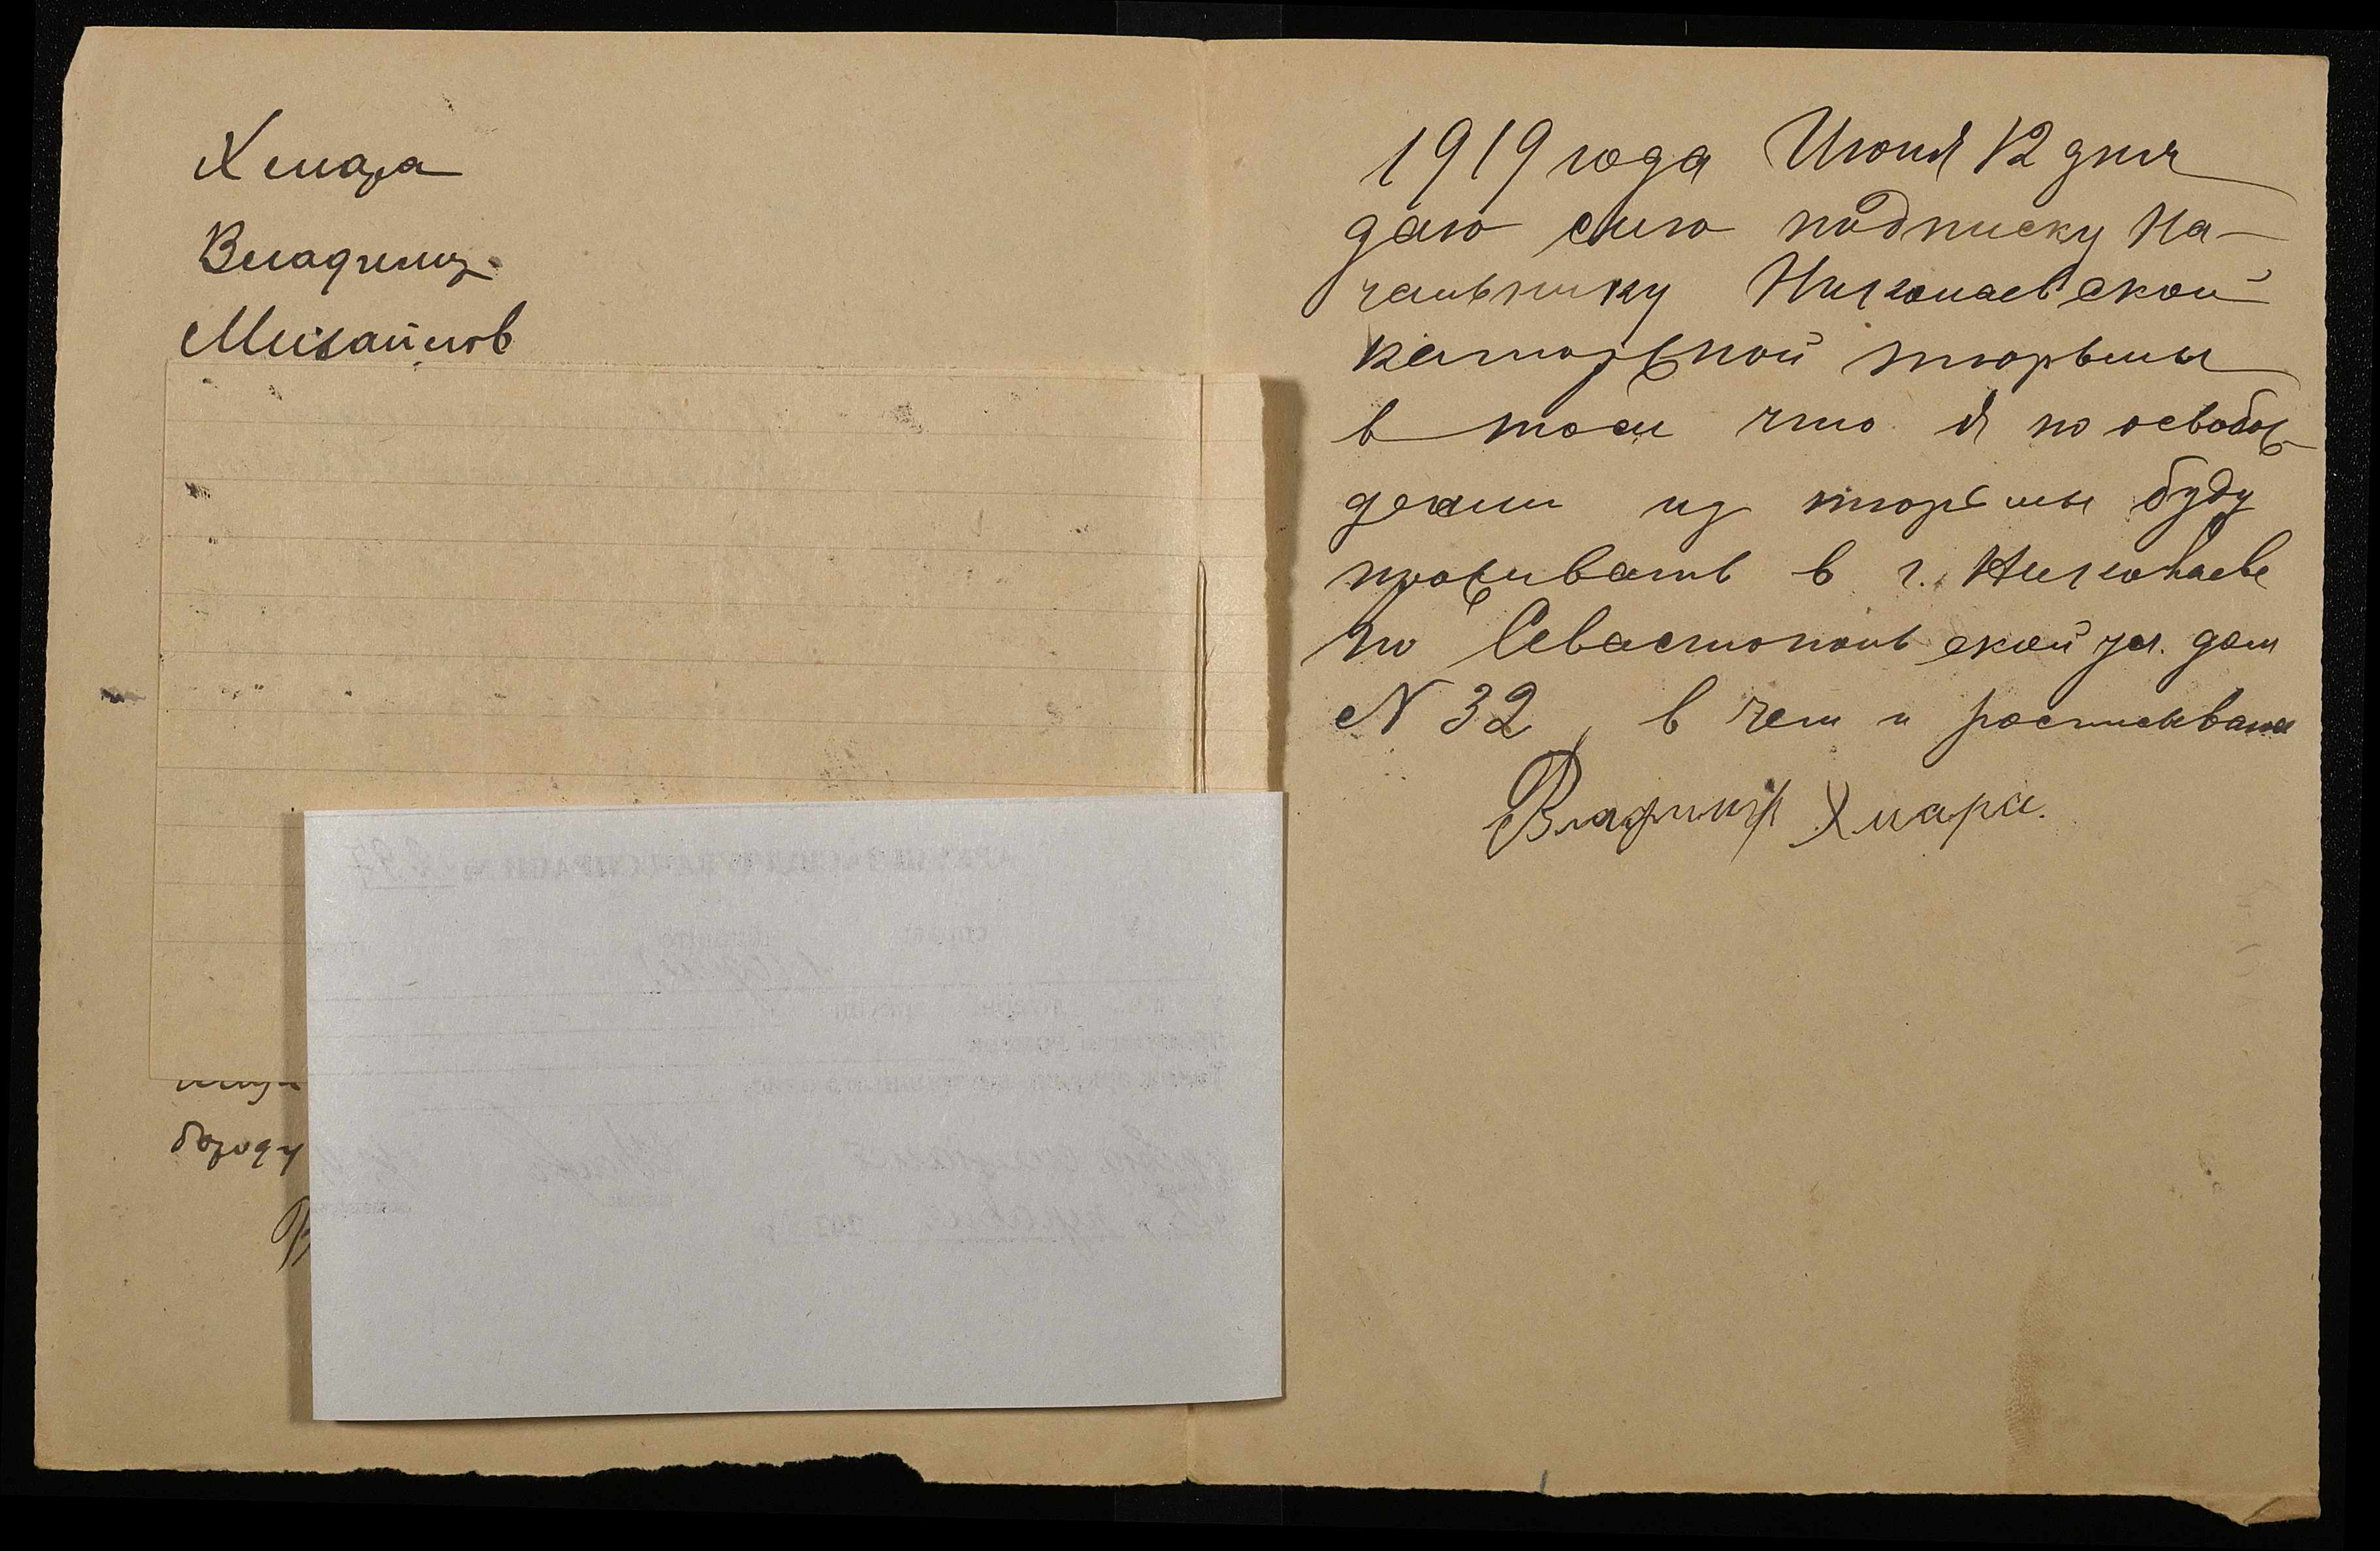 Хмара
Владимир
Михайлов
бороду
1919 года Июня 12 дня
даю сию подписку На-
чальнику Николаевской
каторжной тюрьмы
в том что я по освобож-
дении из тюрьмы буду
проживать в г. Николаеве
по Севастопольской ул. дом
N 32, в чем и росписываюсь
Владимир Хмара.